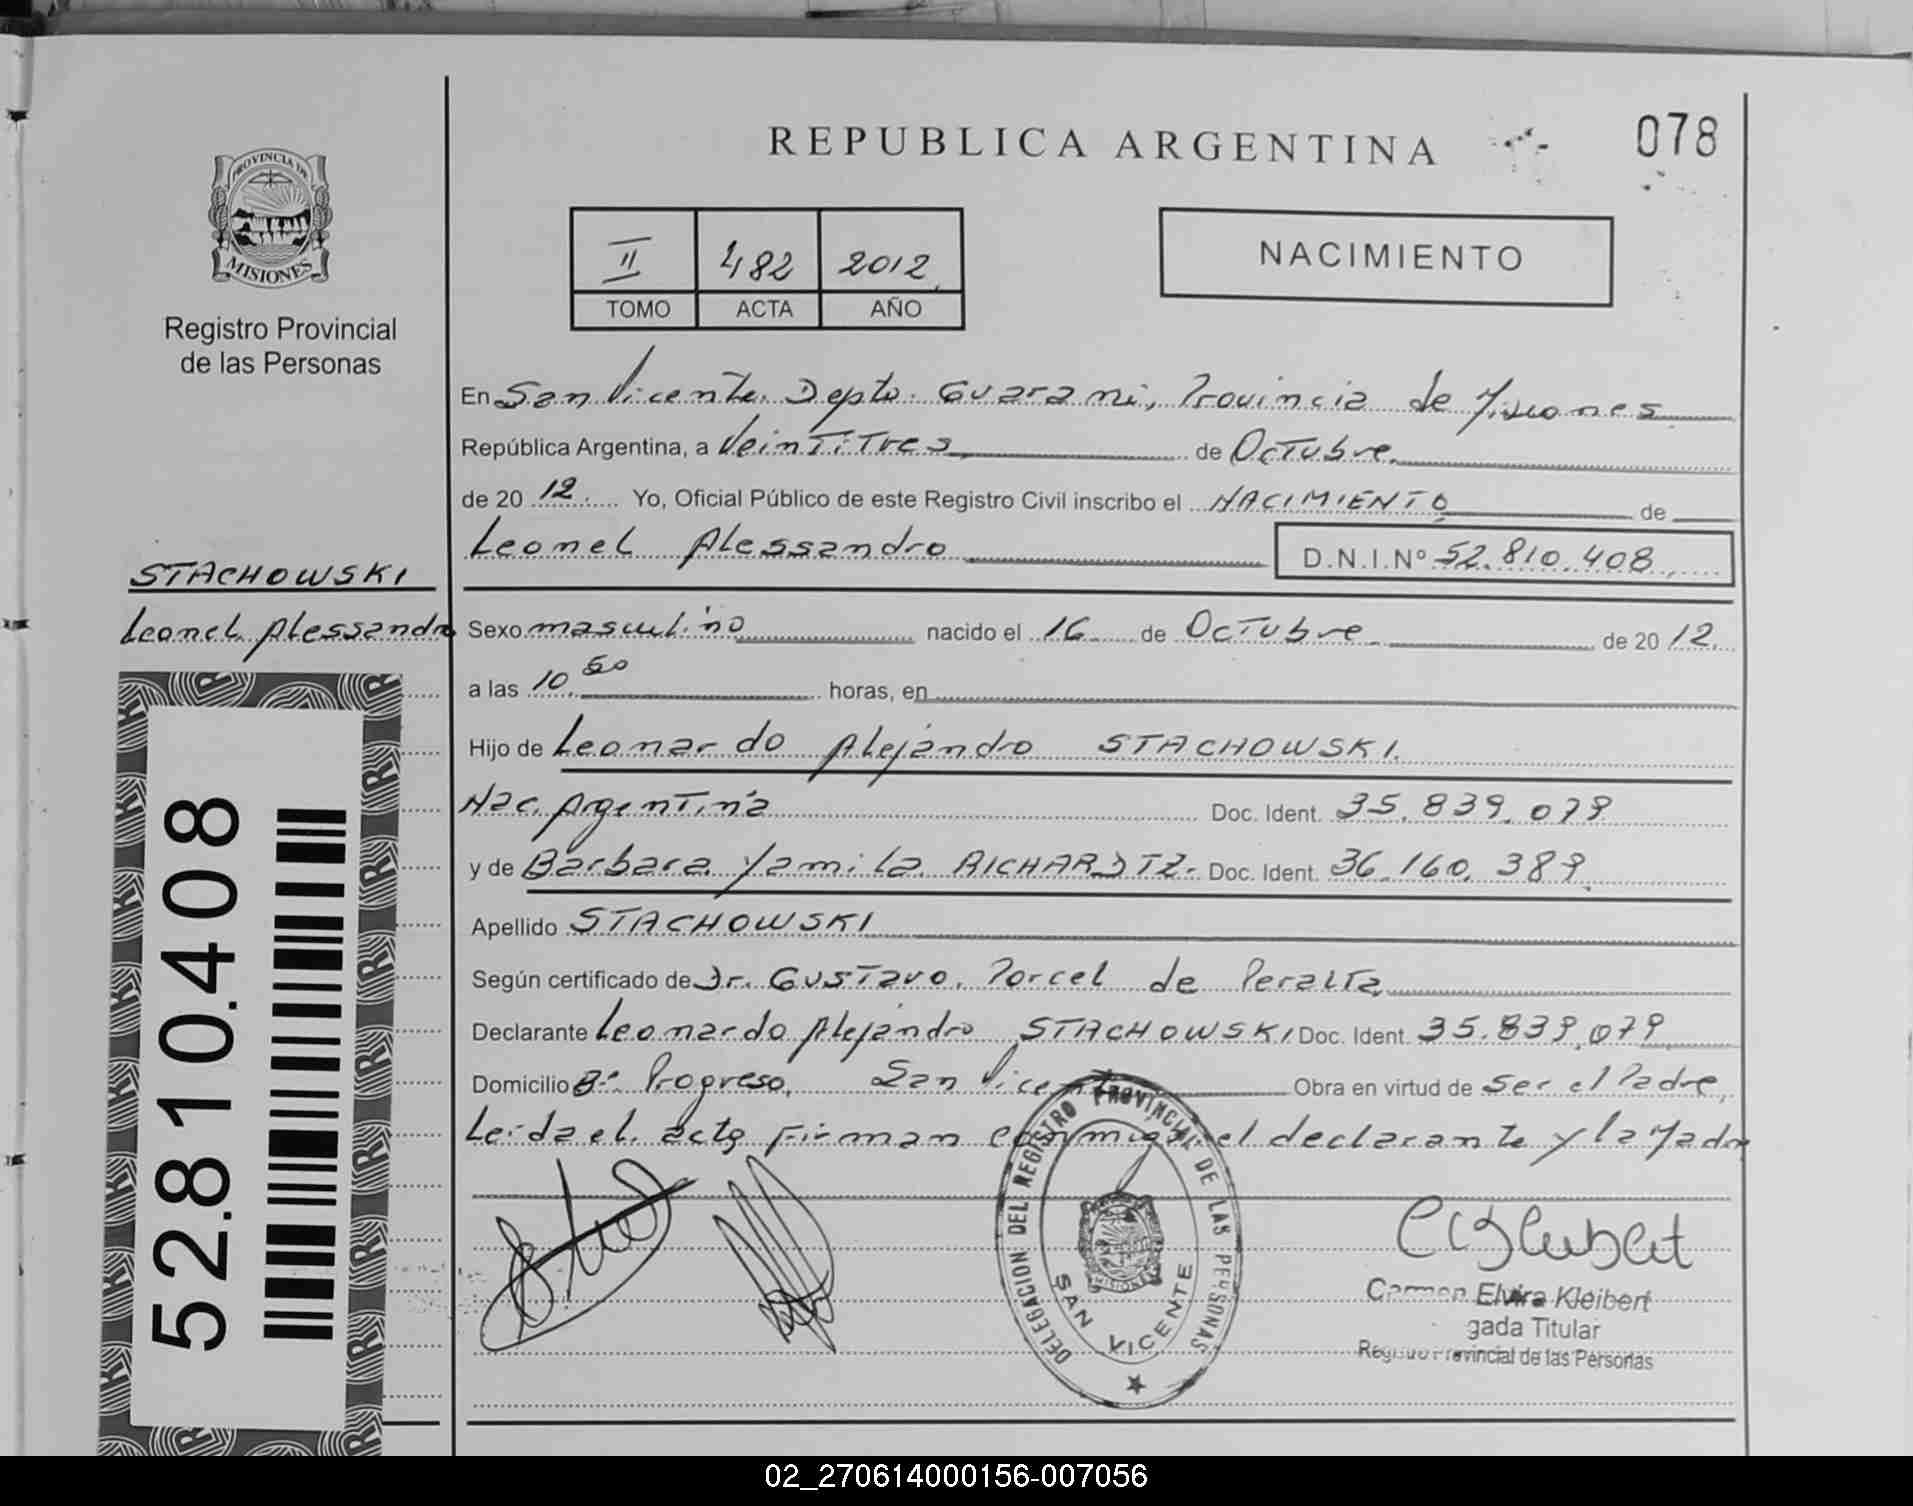 REPUBLICA ARGENTINA
078
PROVINCIA DE
MISIONES
Registro Provincial
de las Personas
II 482 2012
TOMO ACTA AÑO
NACIMIENTO
En San Vicente. Depto. Guarani, Provincia de Misiones
República Argentina, a Veintitres de Octubre.
de 2012. Yo, Oficial Público de este Registro Civil inscribo el NACIMIENTO de
Leonel Alessandro
D.N.I.Nº 52.810.408
STACHOWSKI
Leonel Alessandro
Sexo masculino nacido el 16 de Octubre de 2012.
a las 10,50 horas, en
Hijo de Leonardo Alejandro STACHOWSKI.
Nac. Argentina Doc. Ident. 35.839.079
y de Barbara Yamila RICHARDTZ. Doc. Ident. 36.160.389.
Apellido STACHOWSKI
Según certificado de Dr. Gustavo. Porcel de Peralta
Declarante Leonardo Alejandro STACHOWSKI Doc. Ident. 35.839.079
Domicilio Bº Progreso, San Vicente Obra en virtud de ser el Padre,
Leida el acta Firman conmigo el declarante y la Madre
52.810.408
DELEGACION DEL REGISTRO PROVINCIAL DE LAS PERSONAS
MISIONES
SAN VICENTE
Carmen Elvira Kleibert
gada Titular
Registro Provincial de las Personas
02_270614000156-007056